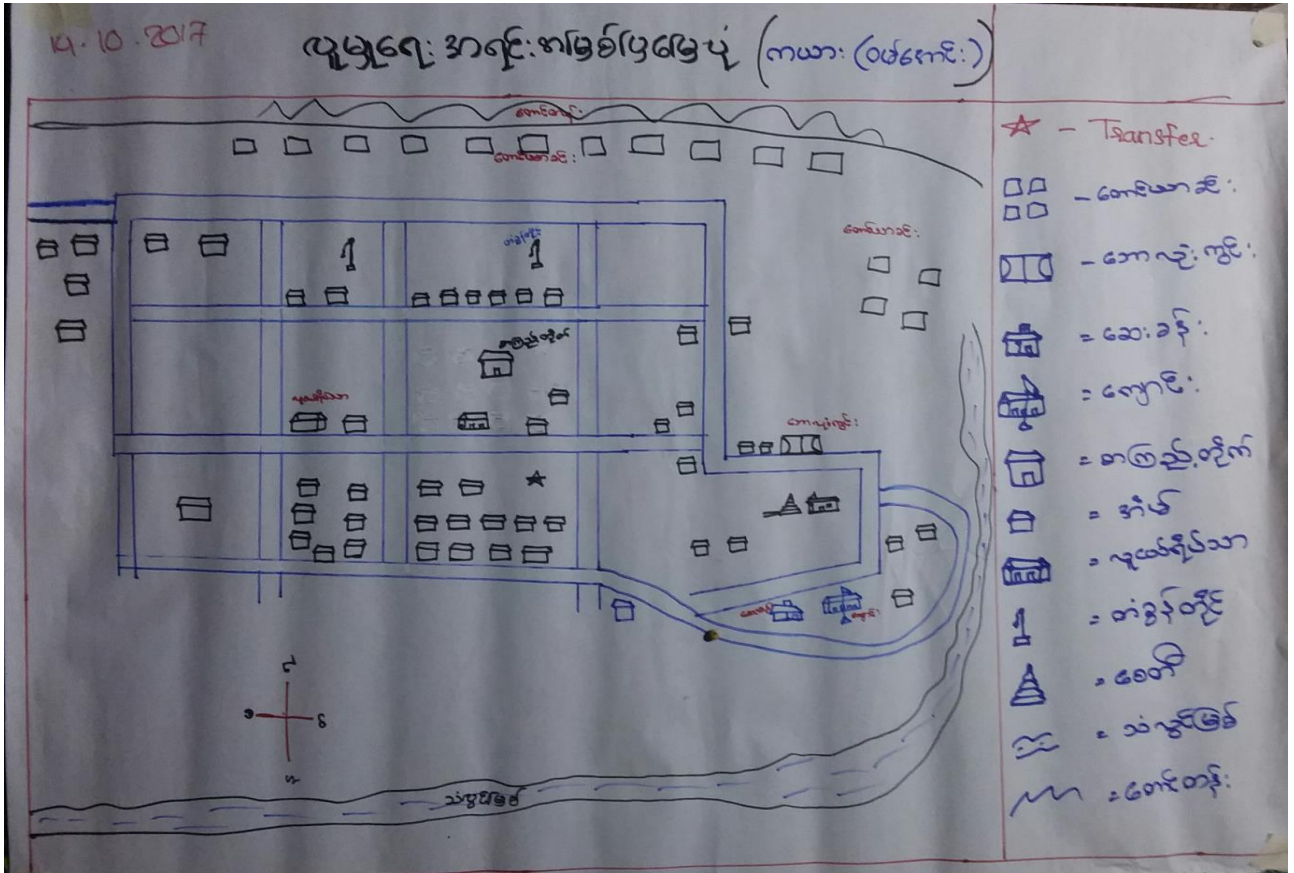 14.10.2017
လူမှုရေး အရင်းအမြစ်ပြမြေပုံ (ကယား (ဝမ်အောင်း)
တောင်တန်း
တောင်ယာခင်း
တံခွန်တိုင်
တောင်ယာခင်း
စာကြည့်တိုက်
ဘောလုံးကွင်း
ဆေးခန်း
ကျောင်း
သံလွင်မြစ်
☆ - Transfer.
- တောင်ယာခင်း
- ဘောလုံးကွင်း
= ဆေးခန်း
= ကျောင်း
= စာကြည့်တိုက်
= အိမ်
= လူငယ်ရိပ်သာ
= တံခွန်တိုင်
= စေတီ
= သံလွင်မြစ်
= တောင်တန်း